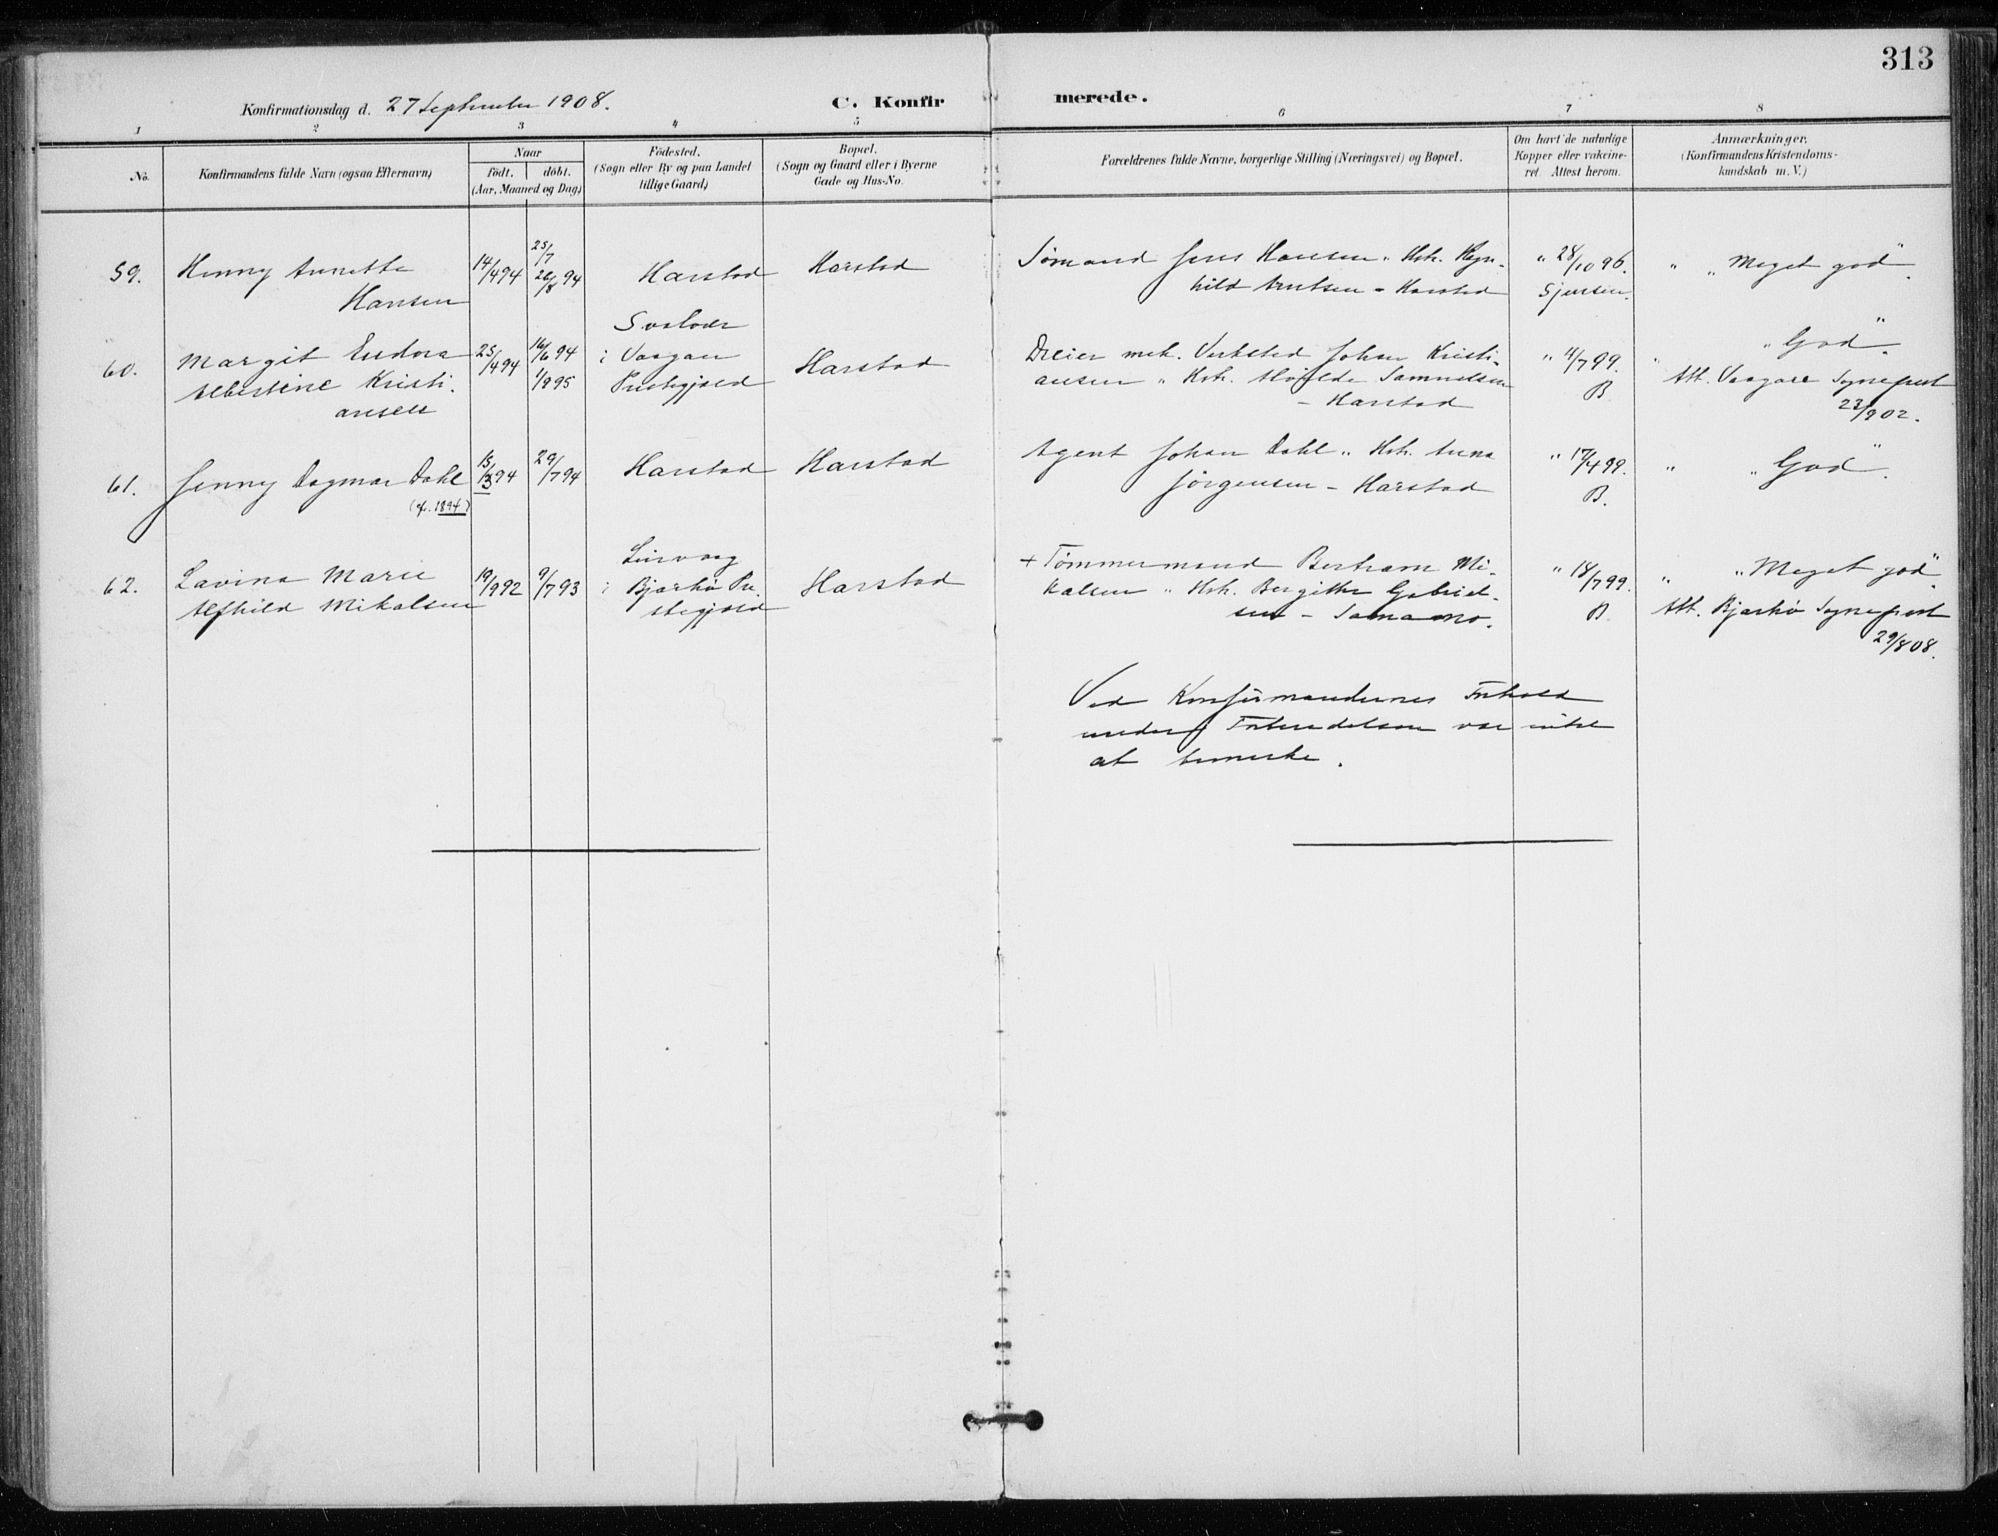 313
Konfirmationsdag d. 27 September 1908.
C. Konfirmerede.
1 2 3 4 5 6 7 8
No.
Konfirmandens fulde Navn (ogsaa Efternavn)
Naar
födt. döbt.
(Aar, Maaned og Dag)
Födested.
(Sogn eller By og paa Landet
tillige Gaard)
Bopæl.
(Sogn og Gaard eller i Byerne
Gade og Hus-No.
Forældrenes fulde Navne, borgerlige Stilling (Næringsvei) og Bopæl.
Om havt de naturlige
Kopper eller vakcine-
ret. Attest herom.
Anmærkninger.
(Konfirmandens Kristendoms-
kundskab m. V.)
59. Henny Annette
Hansen
14/4 94
25/7
26/8 94
Harstad
Harstad
Sømand Jens Hansen " Hst. Ragn-
hild Arntsen - Harstad
" 28/10 96.
" " Meget god".
60. Margit Eudora
Albertine Kristi-
ansen
25/4 94
16/6 94
1/9 95
Svolvær
i Vaagan
Prestegjæld
Harstad
Dreier mek. Verksted Johan Kristi-
ansen " Hst. Samuelsen
- Harstad
" 11/7 99.
B.
" "God".
Att. Vaagan Sogneprest
22/9 02.
61. Jenny Dagmar Dahl
(f. 1894)
15/3 94
29/7 94
Harstad
Harstad
Agent Johan Dahl " Hst. Anna
Jørgensen - Harstad
" 17/4 99.
B.
" "God".
62. Lavina Marie
Alfhild Mikalsen
19/9 92
9/7 93
i Bjarkø Pre-
stegjæld
Harstad
+ Tømmermand Bertram Mi-
kalsen " Hst. Bergitte Gabriel-
sen - Samamo.
" 18/7 99.
B.
" "Meget god".
Att. Bjarkø Sogneprest
29/8 08.
Ved Konfirmandernes Forhold
under Forberedelsen var intet
at bemerke.